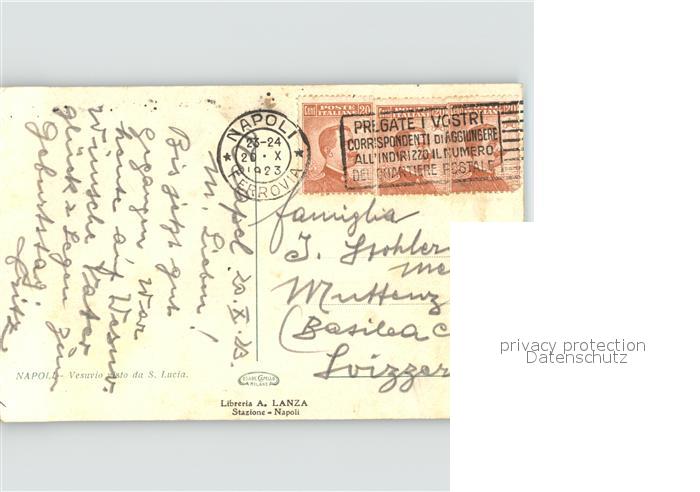 NAPOLI
23-24
20 · X
1923
FERROVIA
POSTE ITALIANE
CENT 20
PREGATE I VOSTRI
CORRISPONDENTI DI AGGIUNGERE
ALL'INDIRIZZO IL NUMERO
DEL QUARTIERE POSTALE
20. X. 23.
M. Lieben!
Bis jetzt gut
ergangen war
heute auf Vesuv.
Wünsche Vater
Glück & Segen zum
Geburtstag.
Fritz
famiglia
J. Stohler
Muttenz
(Basilea
Svizzer
NAPOLI - Vesuvio visto da S. Lucia.
MILANO
Libreria A. LANZA
Stazione - Napoli
privacy protection
Datenschutz